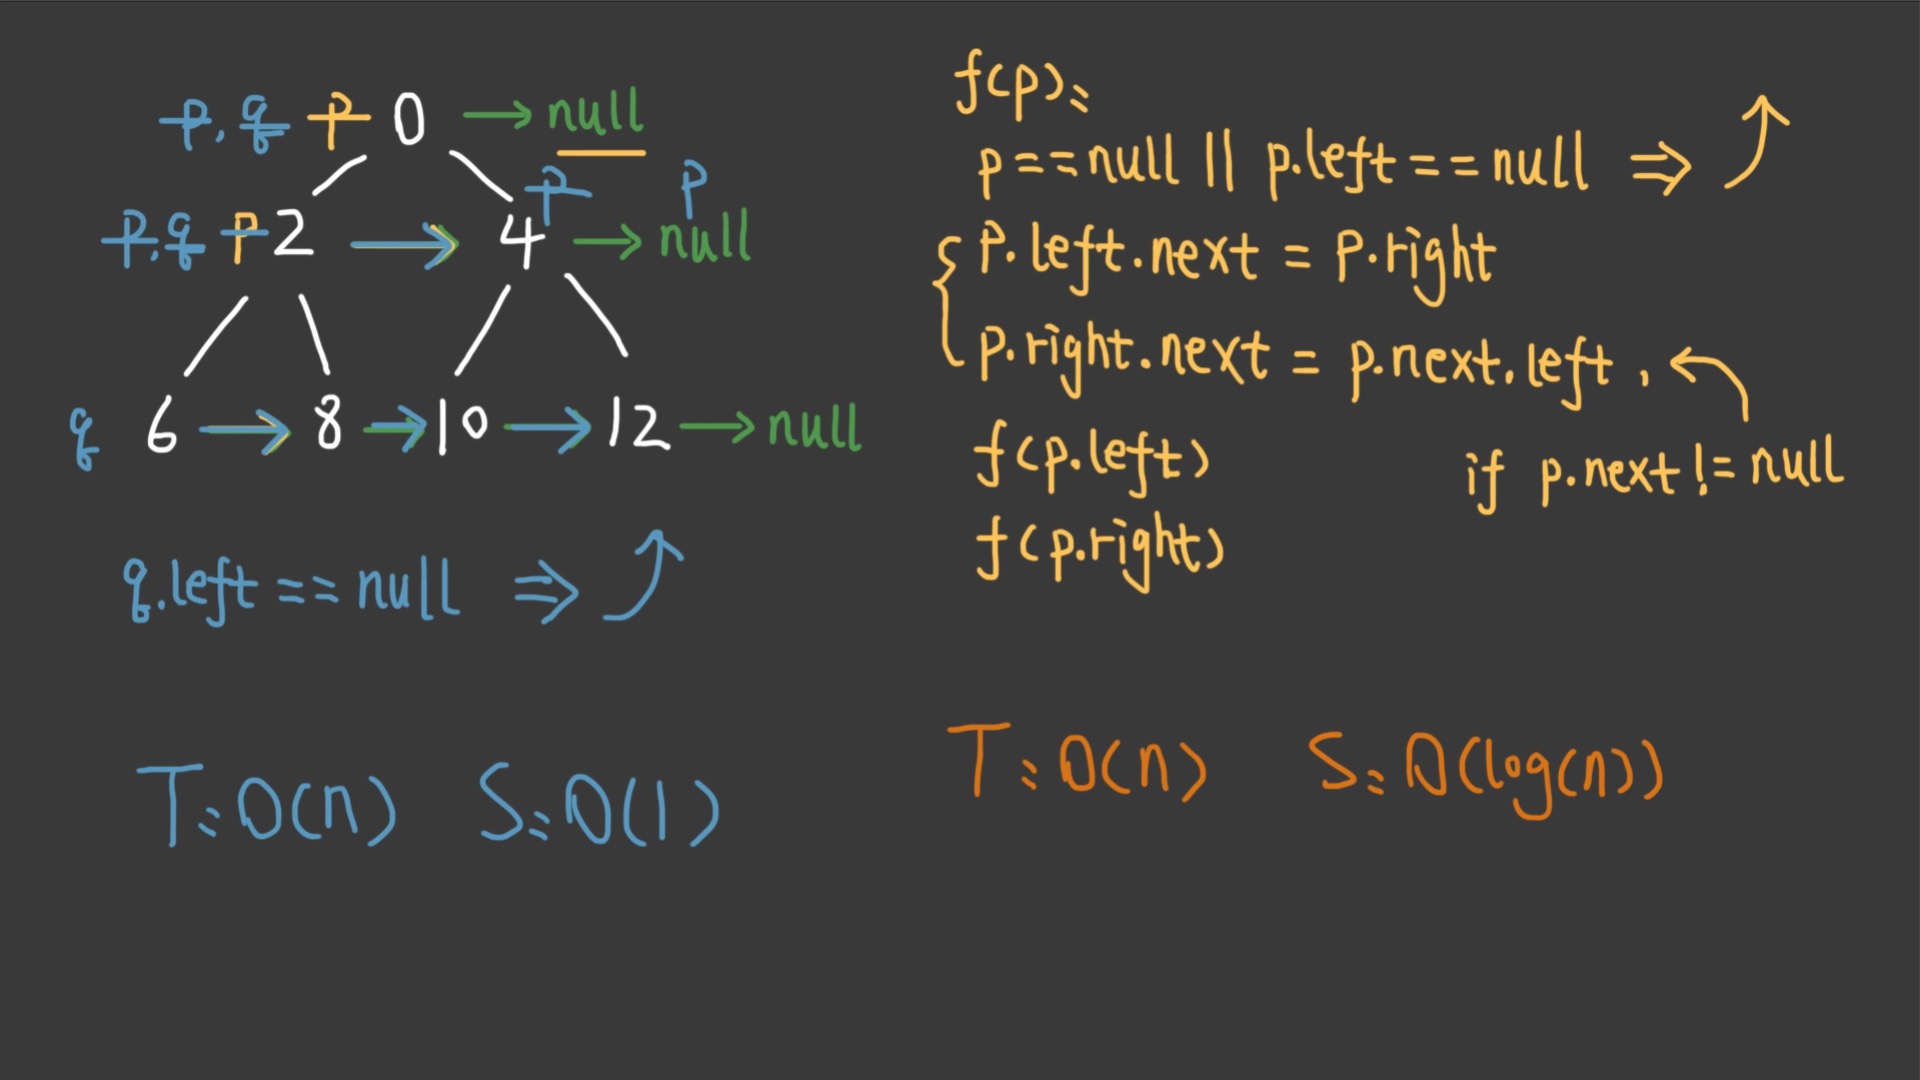 p, q p 0 → null
p, q p 2 → 4 p → null p
q 6 → 8 → 10 → 12 → null
q.left == null ⇒
T: O(n) S: O(1)
f(p):
p == null || p.left == null ⇒
p.left.next = p.right
p.right.next = p.next.left,
if p.next != null
f(p.left)
f(p.right)
T: O(n) S: O(log(n))